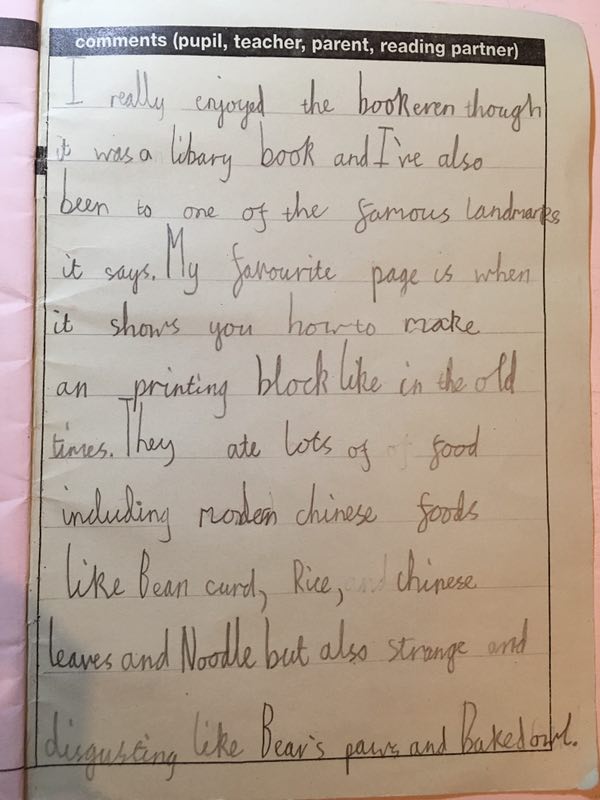 comments (pupil, teacher, parent, reading partner)
I really enjoyed the book even though
it was a libary book and I've also
been to one of the famous landmarks
it says. My favourite page is when
it shows you how to make
an printing block like in the old
times. They ate lots of of food
including modern chinese foods
like Bean curd, Rice, and chinese
leaves and Noodle but also strange and
disgusting like Bear's paws and Baked owl.